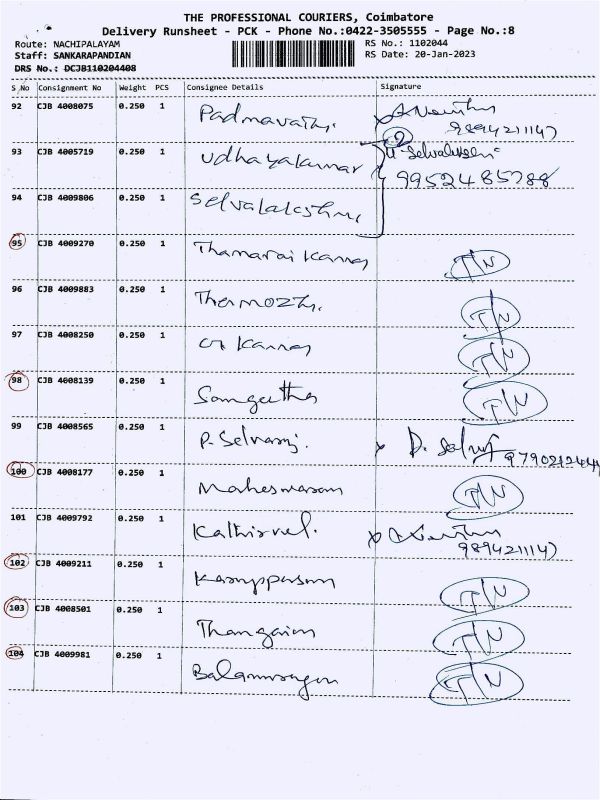 THE PROFESSIONAL COURIERS, Coimbatore
Delivery Runsheet - PCK - Phone No.:0422-3505555 - Page No.:8
Route: NACHIPALAYAM RS No.: 1102044
Staff: SANKARAPANDIAN RS Date: 20-Jan-2023
DRS No.: DCJB110204408
S No Consignment No Weight PCS Consignee Details Signature
92 CJB 4008075 0.250 1 Padmavathy.
9894211147
93 CJB 4005719 0.250 1 Udhayakumar 2
9952485788
94 CJB 4009806 0.250 1 Selvalakshmi
95 CJB 4009270 0.250 1 Thamarai Kannan T/N
96 CJB 4009883 0.250 1 Thenmozhi. T/N
97 CJB 4008250 0.250 1 Kannan T/N
98 CJB 4008139 0.250 1 Sangeetha T/N
99 CJB 4008565 0.250 1 P. Selvaraj.
100 CJB 4008177 0.250 1 Maheswaran T/N
101 CJB 4009792 0.250 1 Kathirvel.
9894211147
102 CJB 4009211 0.250 1 Karuppusam T/N
103 CJB 4008501 0.250 1 T/N
104 CJB 4009981 0.250 1 Balamurugan T/N